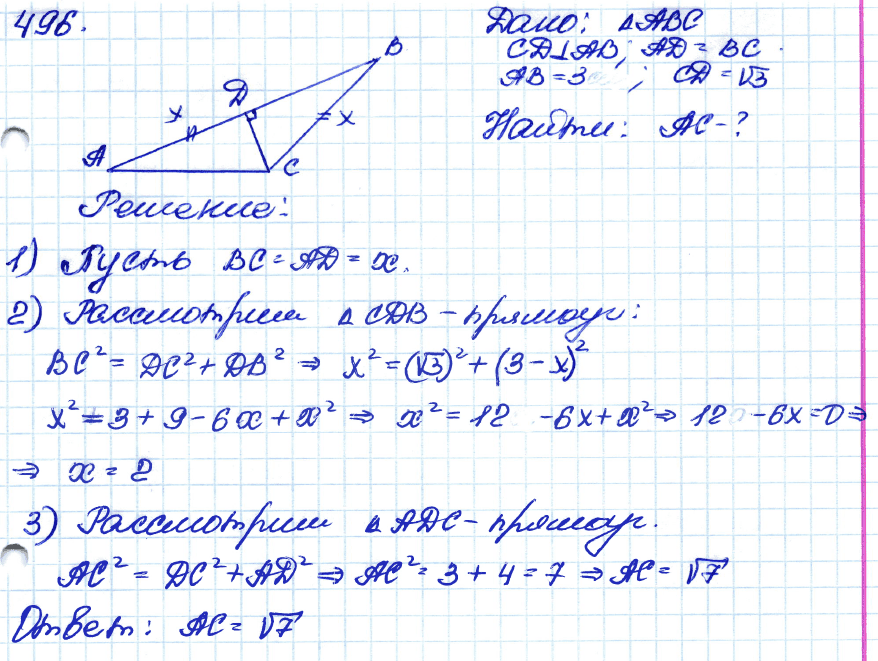 496.
Дано: ΔABC
CD⊥AB; AD = BC.
AB = 3 ; CD = √3
Найти: AC - ?
B
D
x
= x
A
C
Решение:
1) Пусть BC = AD = x.
2) Рассмотрим Δ CDB - прямоуг:
BC² = DC² + DB² ⇒ x² = (√3)² + (3 - x)²
x² = 3 + 9 - 6x + x² ⇒ x² = 12 - 6x + x² ⇒ 12 - 6x = 0 ⇒
⇒ x = 2
3) Рассмотрим Δ ADC - прямоуг.
AC² = DC² + AD² ⇒ AC² = 3 + 4 = 7 ⇒ AC = √7
Ответ: AC = √7